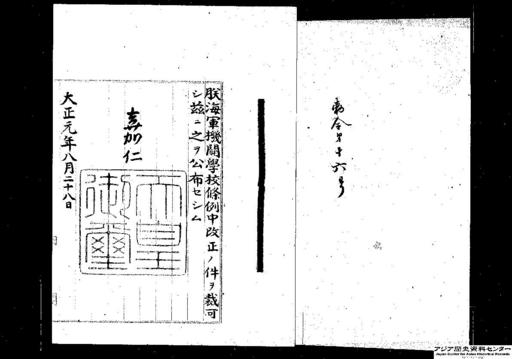 勅令第十六号
朕海軍機関學校條例中改正ノ件ヲ裁可
シ茲ニ之ヲ公布セシム
嘉仁
天皇御璽
大正元年八月二十八日
アジア歴史資料センター
Japan Center for Asian Historical Records